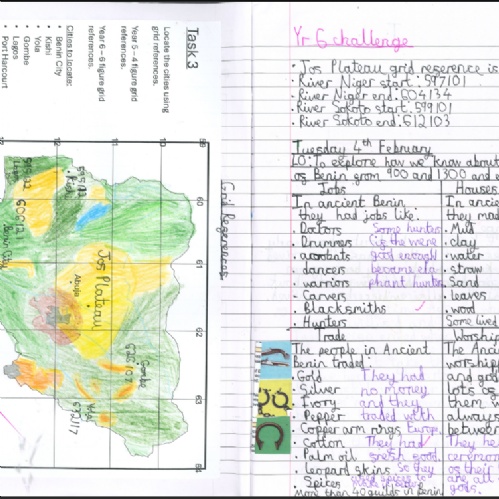 Task 3
Locate the cities using
grid references.
Year 5 – 4 figure grid
references.
Year 6 – 6 figure grid
references.
Cities to locate:
• Benin City
• Kishi
• Yola
• Gombe
• Lagos
• Port Harcourt
Grid References
59
60
61
62
63
64
12
11
Kishi
Jos Plateau
Abuja
Gombe
626107
Yola
632117
Benin City
Yr 6 challenge
• Jos Plateau grid reserence is
• River Niger start: 597101
• River Niger end: 604134
• River Sokoto start: 599101
• River Sokoto end: 612103
Tuesday 4th February
LO: To explore how we know about
os Benin grom 900 and 1300 and e
Jobs
In ancient Benin
they had jobs like:
• Doctors
• Drummers
• acrobats
• dancers
• warriors
• Carvers
• Blacksmiths
• Hunters
Some hunters
(is the were
good enough
became ele
phant hunte
Houses
In ancie
they mad
• Mud
• clay
• water
• straw
• Sand
• leaves
• wood
Some lived
Trade
The people in Ancient
benin traded:
• Gold
• Silver
• Ivory
• Pepper
• Copper arm rings
• Cotton
• Palm oil
• Leopard skins
• Spices
More than 40 guides in Benin
They had
no money
and they
traded with
They had
So they
Worship
The Anc
worshipp
and god
lots os
them w
always
between
They he
ceremon
os their
are all
gods.